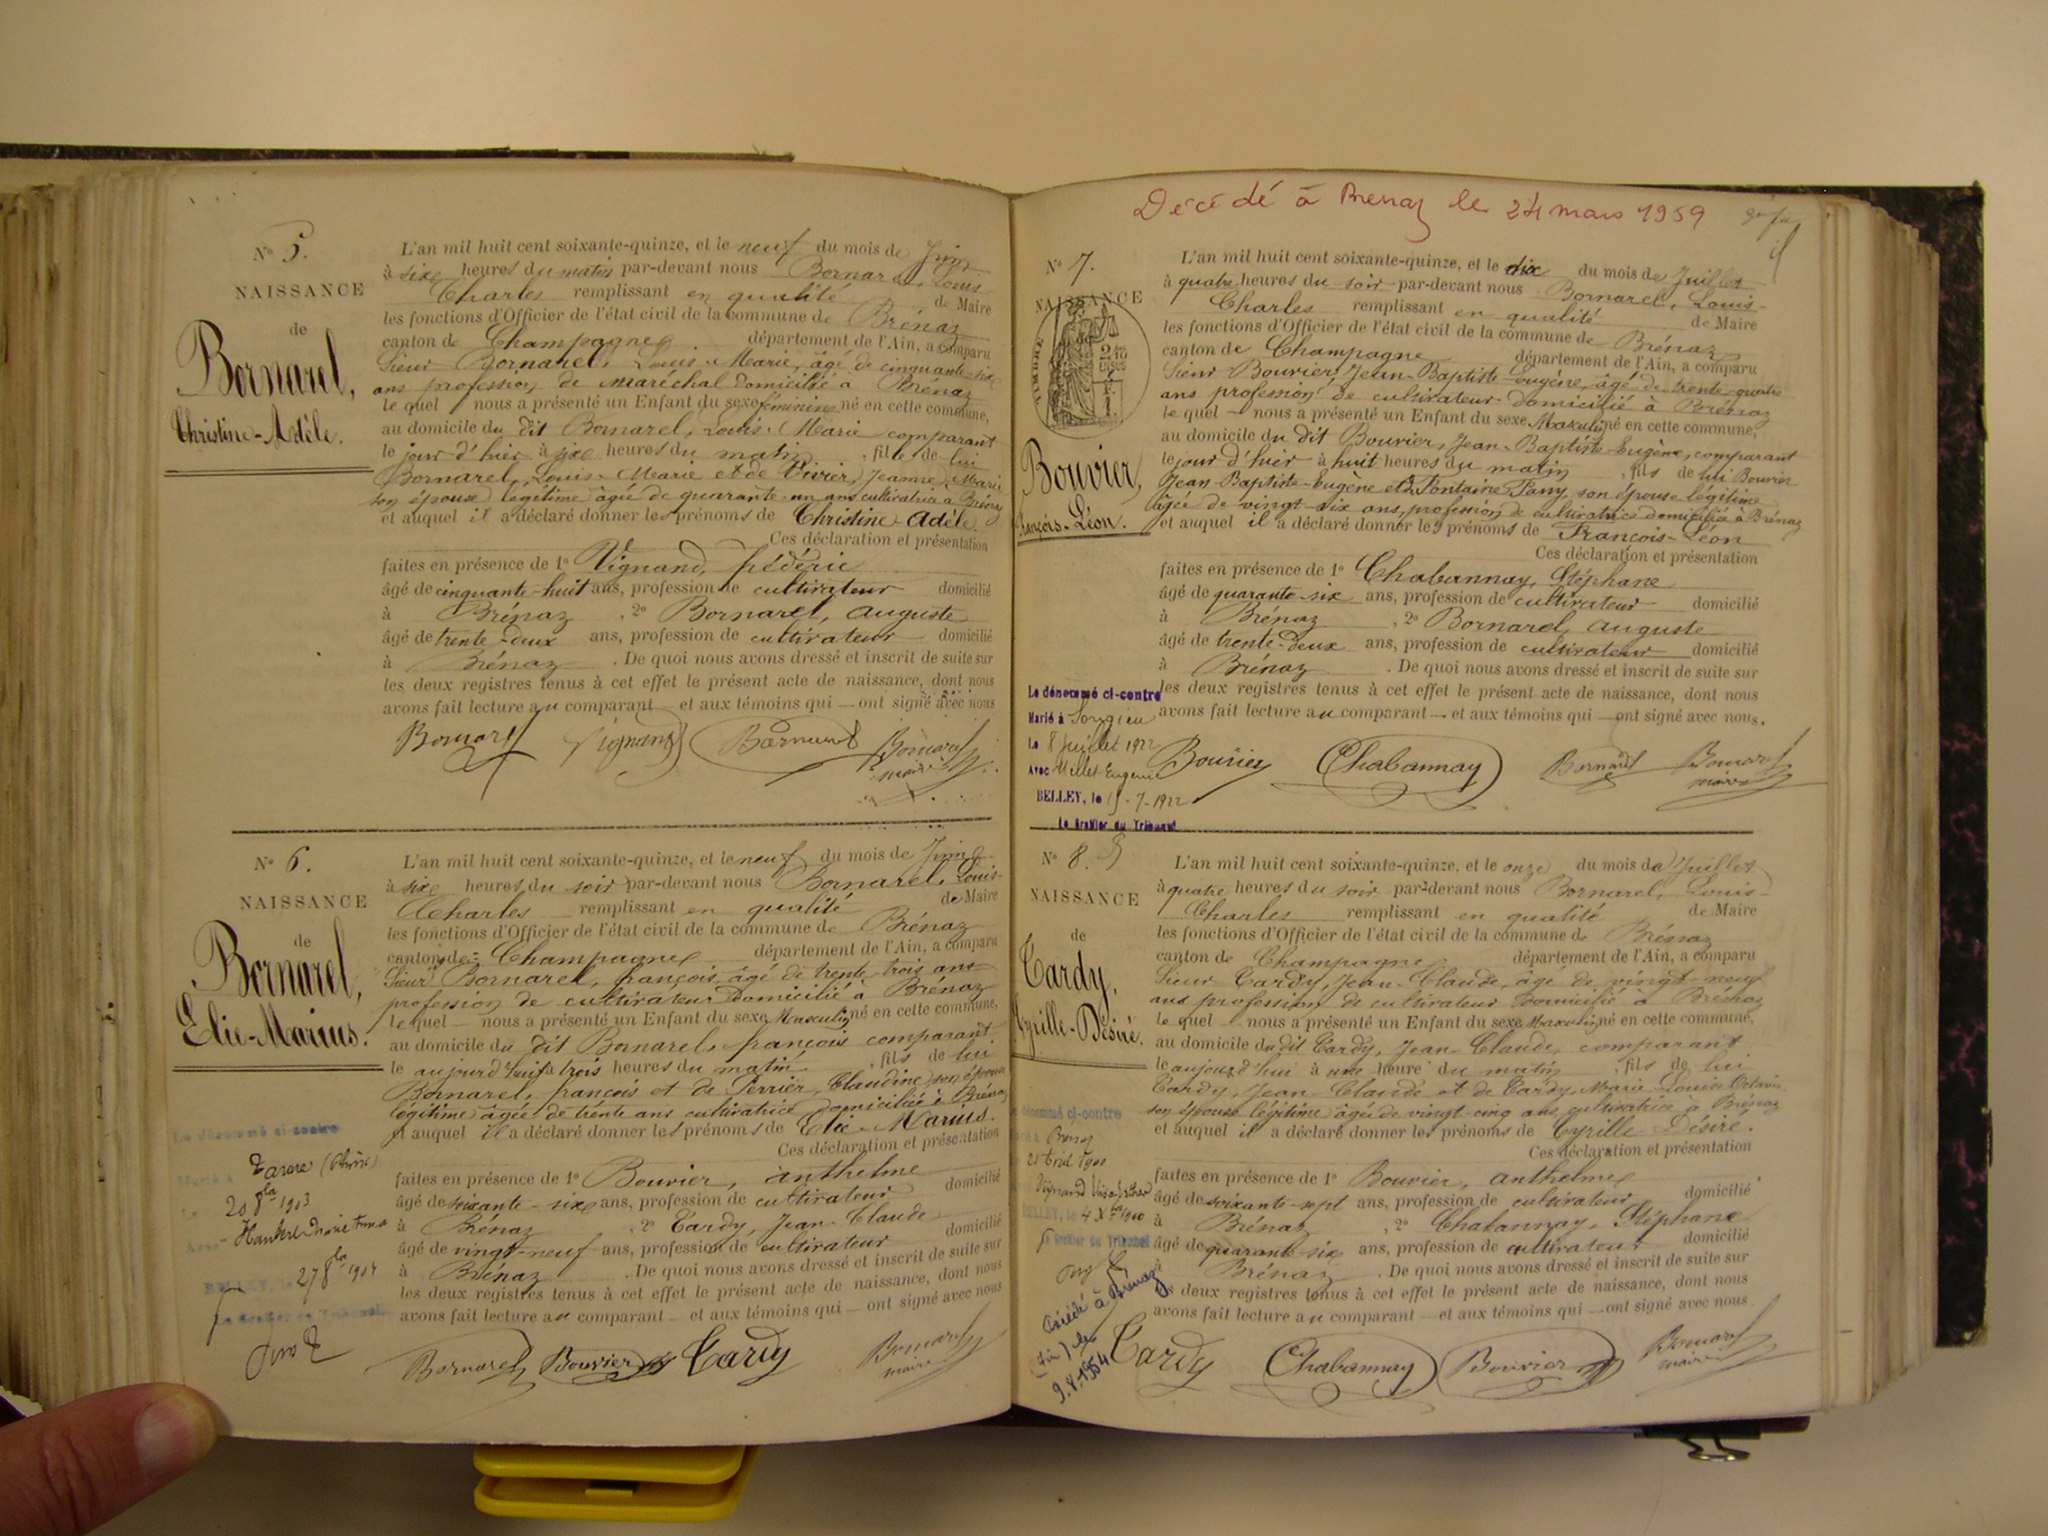 No 5.
NAISSANCE
de
Bornarel,
Christine-Adèle.
L'an mil huit cent soixante-quinze, et le neuf du mois de Juin
à six heures du matin par-devant nous Bornarel, Louis-
Charles remplissant en qualité de Maire
les fonctions d'Officier de l'état civil de la commune de Brénaz
canton de Champagne département de l'Ain, a comparu
Sieur Bornarel, Louis-Marie, âgé de cinquante-six
ans profession de Maréchal domicilié à Brénaz
le quel nous a présenté un Enfant du sexe féminin né en cette commune,
au domicile du dit Bornarel, Louis-Marie comparant
le jour d'hier à six heures du matin, fille de lui
Bornarel, Louis-Marie et de Vivier, Jeanne Marie
son épouse légitime âgée de quarante-un ans cultivatrice à Brénaz
et auquel il a déclaré donner les prénoms de Christine-Adèle
Ces déclaration et présentation
faites en présence de 1o Vignand, frédéric
âgé de cinquante-huit ans, profession de cultivateur domicilié
à Brénaz, 2o Bornarel, auguste
âgé de trente-deux ans, profession de cultivateur domicilié
à Brénaz. De quoi nous avons dressé et inscrit de suite sur
les deux registres tenus à cet effet le présent acte de naissance, dont nous
avons fait lecture au comparant et aux témoins qui ont signé avec nous
Bornarel Vignand Bornarel Bornarel
maire
No 6.
NAISSANCE
de
Bornarel,
Elie-Marius.
L'an mil huit cent soixante-quinze, et le neuf du mois de Juin
à six heures du soir par-devant nous Bornarel, Louis-
Charles remplissant en qualité de Maire
les fonctions d'Officier de l'état civil de la commune de Brénaz
canton de Champagne département de l'Ain, a comparu
Sieur Bornarel, françois, âgé de trente-trois ans
profession de cultivateur domicilié à Brénaz
le quel nous a présenté un Enfant du sexe Masculin né en cette commune,
au domicile du dit Bornarel, françois comparant
le aujourd'hui à trois heures du matin, fils de lui
Bornarel, françois et de Perrier, Claudine, son épouse
légitime âgée de trente ans cultivatrice domiciliée à Brénaz
et auquel il a déclaré donner les prénoms de Elie-Marius.
Ces déclaration et présentation
faites en présence de 1o Bouvier, anthelme
âgé de soixante-six ans, profession de cultivateur domicilié
à Brénaz, 2o Tardy, Jean-Claude
âgé de vingt-neuf ans, profession de cultivateur domicilié
à Brénaz. De quoi nous avons dressé et inscrit de suite sur
les deux registres tenus à cet effet le présent acte de naissance, dont nous
avons fait lecture au comparant et aux témoins qui ont signé avec nous
Le dénommé ci-contre
Marié à Tarare (Rhône)
Le 20 8bre 1903
Avec
27 8bre 1904
BELLEY, le
Le Greffier du Tribunal
Bornarel Bouvier Tardy Bornarel
maire
Décédé à Brenaz le 24 mars 1959
No 7.
NAISSANCE
TIMBRE
Bouvier,
François-Léon.
L'an mil huit cent soixante-quinze, et le dix du mois de Juillet
à quatre heures du soir par-devant nous Bornarel, Louis-
Charles remplissant en qualité de Maire
les fonctions d'Officier de l'état civil de la commune de Brénaz
canton de Champagne département de l'Ain, a comparu
Sieur Bouvier, Jean-Baptiste-Eugène, âgé de trente-quatre
ans profession de cultivateur domicilié à Brénaz
le quel nous a présenté un Enfant du sexe Masculin né en cette commune,
au domicile du dit Bouvier, Jean-Baptiste-Eugène, comparant
le jour d'hier à huit heures du matin, fils de lui Bouvier
Jean-Baptiste-Eugène et de Fontaine Fany, son épouse légitime
âgée de vingt-six ans, profession de cultivatrice domiciliée à Brénaz
et auquel il a déclaré donner les prénoms de François-Léon
Ces déclaration et présentation
faites en présence de 1o Chabannay, Stéphane
âgé de quarante-six ans, profession de cultivateur domicilié
à Brénaz, 2o Bornarel, auguste
âgé de trente-deux ans, profession de cultivateur domicilié
à Brénaz. De quoi nous avons dressé et inscrit de suite sur
les deux registres tenus à cet effet le présent acte de naissance, dont nous
avons fait lecture au comparant et aux témoins qui ont signé avec nous.
Le dénommé ci-contre
Marié à Songieu
Le 8 Juillet 1922
Avec Millet Eugénie
BELLEY, le 15-7-1922
Le Greffier du Tribunal
Bouvier Chabannay Bornarel Bornarel
maire
No 8.
NAISSANCE
de
Tardy,
Cyrille-Désiré.
L'an mil huit cent soixante-quinze, et le onze du mois de Juillet
à quatre heures du soir par-devant nous Bornarel, Louis-
Charles remplissant en qualité de Maire
les fonctions d'Officier de l'état civil de la commune de Brénaz
canton de Champagne département de l'Ain, a comparu
Sieur Tardy, Jean-Claude, âgé de vingt-neuf
ans profession de cultivateur domicilié à Brénaz
le quel nous a présenté un Enfant du sexe Masculin né en cette commune,
au domicile du dit Tardy, Jean-Claude, comparant
le aujourd'hui à une heure du matin, fils de lui
Tardy, Jean-Claude et de Tardy, Marie-Louise Octavie
son épouse légitime âgée de vingt-cinq ans cultivatrice à Brénaz
et auquel il a déclaré donner les prénoms de Cyrille-Désiré.
Ces déclaration et présentation
faites en présence de 1o Bouvier, anthelme
âgé de soixante-sept ans, profession de cultivateur domicilié
à Brénaz, 2o Chabannay, Stéphane
âgé de quarante-six ans, profession de cultivateur domicilié
à Brénaz. De quoi nous avons dressé et inscrit de suite sur
les deux registres tenus à cet effet le présent acte de naissance, dont nous
avons fait lecture au comparant et aux témoins qui ont signé avec nous
dénommé ci-contre
Vignand
BELLEY, le 4 Xbre 1900
Greffier du Tribunal
Décédé à Brénaz
(Ain) le
Tardy Chabannay Bouvier Bornarel
maire